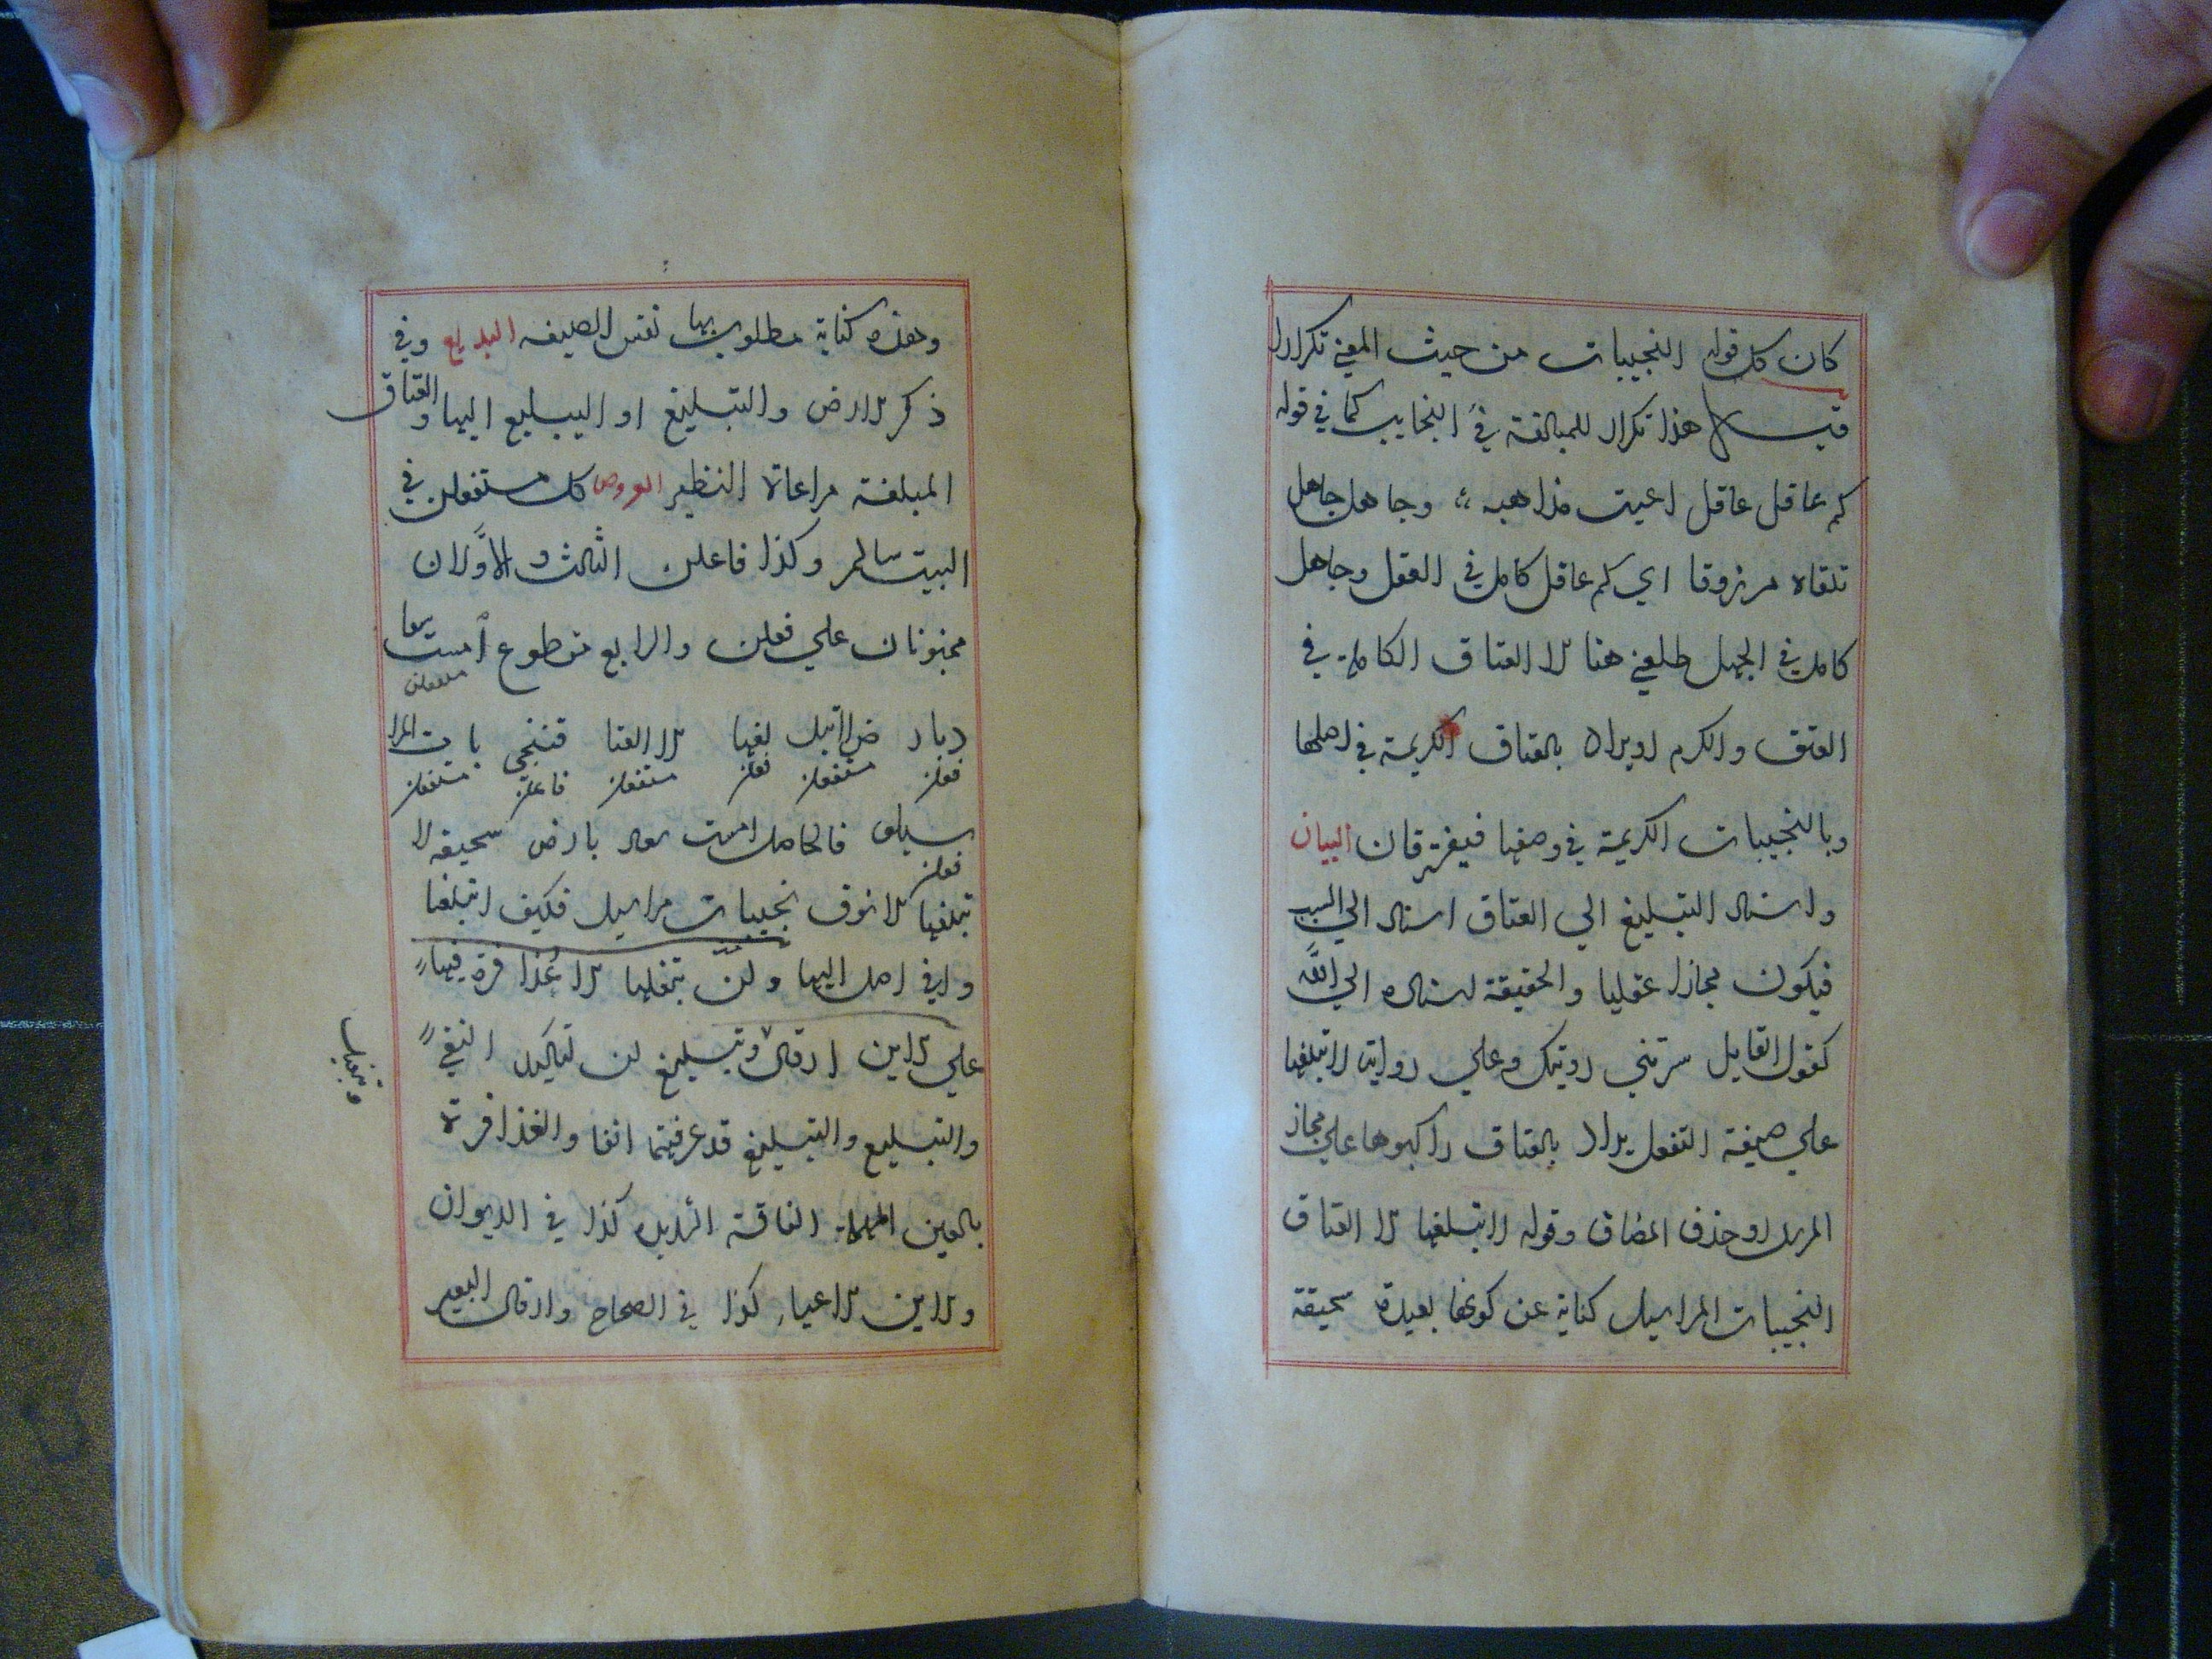 كان كل قوله النجيبات من حيث المعني تكرارا
قيل هذا تكرار للمبالغة في النجايب كما في قوله
كم عاقل عاقل اعيت مذاهبه وجاهل جاهل
تلقاه مرزوقا اي كم عاقل كامل في العقل وجاهل
كامل في الجهل هنا الا العتاق الكاملة في
العتق والكرم او يراد بالعتاق الكريمة في اصلها
وبالنجيبات الكريمة في وصفها فيفترقان البيان
واسناد التبليغ الي العتاق اسناد الي السبب
فيكون مجازا عقليا والحقيقة اسناده الي الله
كقول القايل سرتني رويتك وعلي رواية لا تبلغها
علي صيغة التفعل يراد بالعتاق راكبوها علي مجاز
المرسل او حذف المضاف وقوله لا تبلغها الا العتاق
النجيبات المراسيل كناية عن كونها بعيدة سحيقة
وهذه كناية مطلوب بها نفس الصيغه البديع وفي
ذكر الارض والتبليغ او التبليغ اليها والعتاق
المبلغة مراعاة النظير العروض كل مستفعلن في
البيت سالم وكذا فاعلن الثالث والاولان
مخبونان علي فعلن والرابع مقطوع امست سعا
مستفعلن
دبار ض لا تبل لغها الا العتا قنجي بات المرا
فعلن مستفعلن فعلن مستفعلن فاعلن مستفعلن
سيلو فالحاصل امست سعاد بارض سحيقه لا
فعلن
تبلغها الا نوق نجيبات مراسيل فكيف اتبلغها
واني اصل اليها ولن تبلغها الا عذافرة فيها
علي الاين ارقال وتبغيل لن لتاكيد النفي
والتبليغ والتبليغ قد عرفتهما انفا والعذافرة
بالعين المهملة الناقة الشديده كذا في الديوان
والاين الاعياء كذا في الصحاح وارقال البعير
وتبغيل